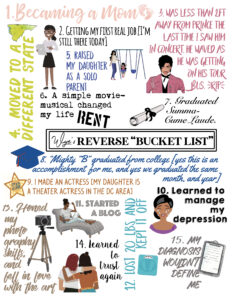 1. Becaming a Mom
2. GETTING MY FIRST REAL JOB [I'M
STILL THERE TODAY]
3. WAS LESS THAN 1 FT
AWAY FROM PRINCE THE
LAST TIME I SAW HIM
IN CONCERT HE WAVED AS
HE WAS GETTING
ON HIS TOUR
BUS. #RIP
4. MOVED TO A
DIFFERENT STATE
5. RAISED
MY DAUGHTER
AS A SOLO
PARENT
6. A simple movie-
musical changed
my life
RENT
7. Graduated
Summa-
Cume-Laude.
REVERSE "BUCKET LIST"
8. "Mighty "B" graduated from college [yes this is an
accomplishment for me, and yes we graduated the same
month, and year]
9. I MADE AN ACTRESS [MY DAUGHTER IS
A THEATER ACTRESS IN THE DC AREA]
10. Learned to
manage
my
depression
11. STARTED
A BLOG
12. LOST 20 LBS AND
KEPT IT OFF
13. Honed
my
photo
graphy
skills,
and
fell in love
with the art
14. learned
to
trust
again
15. MY
DIAGNOSIS
WOULDN'T
DEFINE
ME